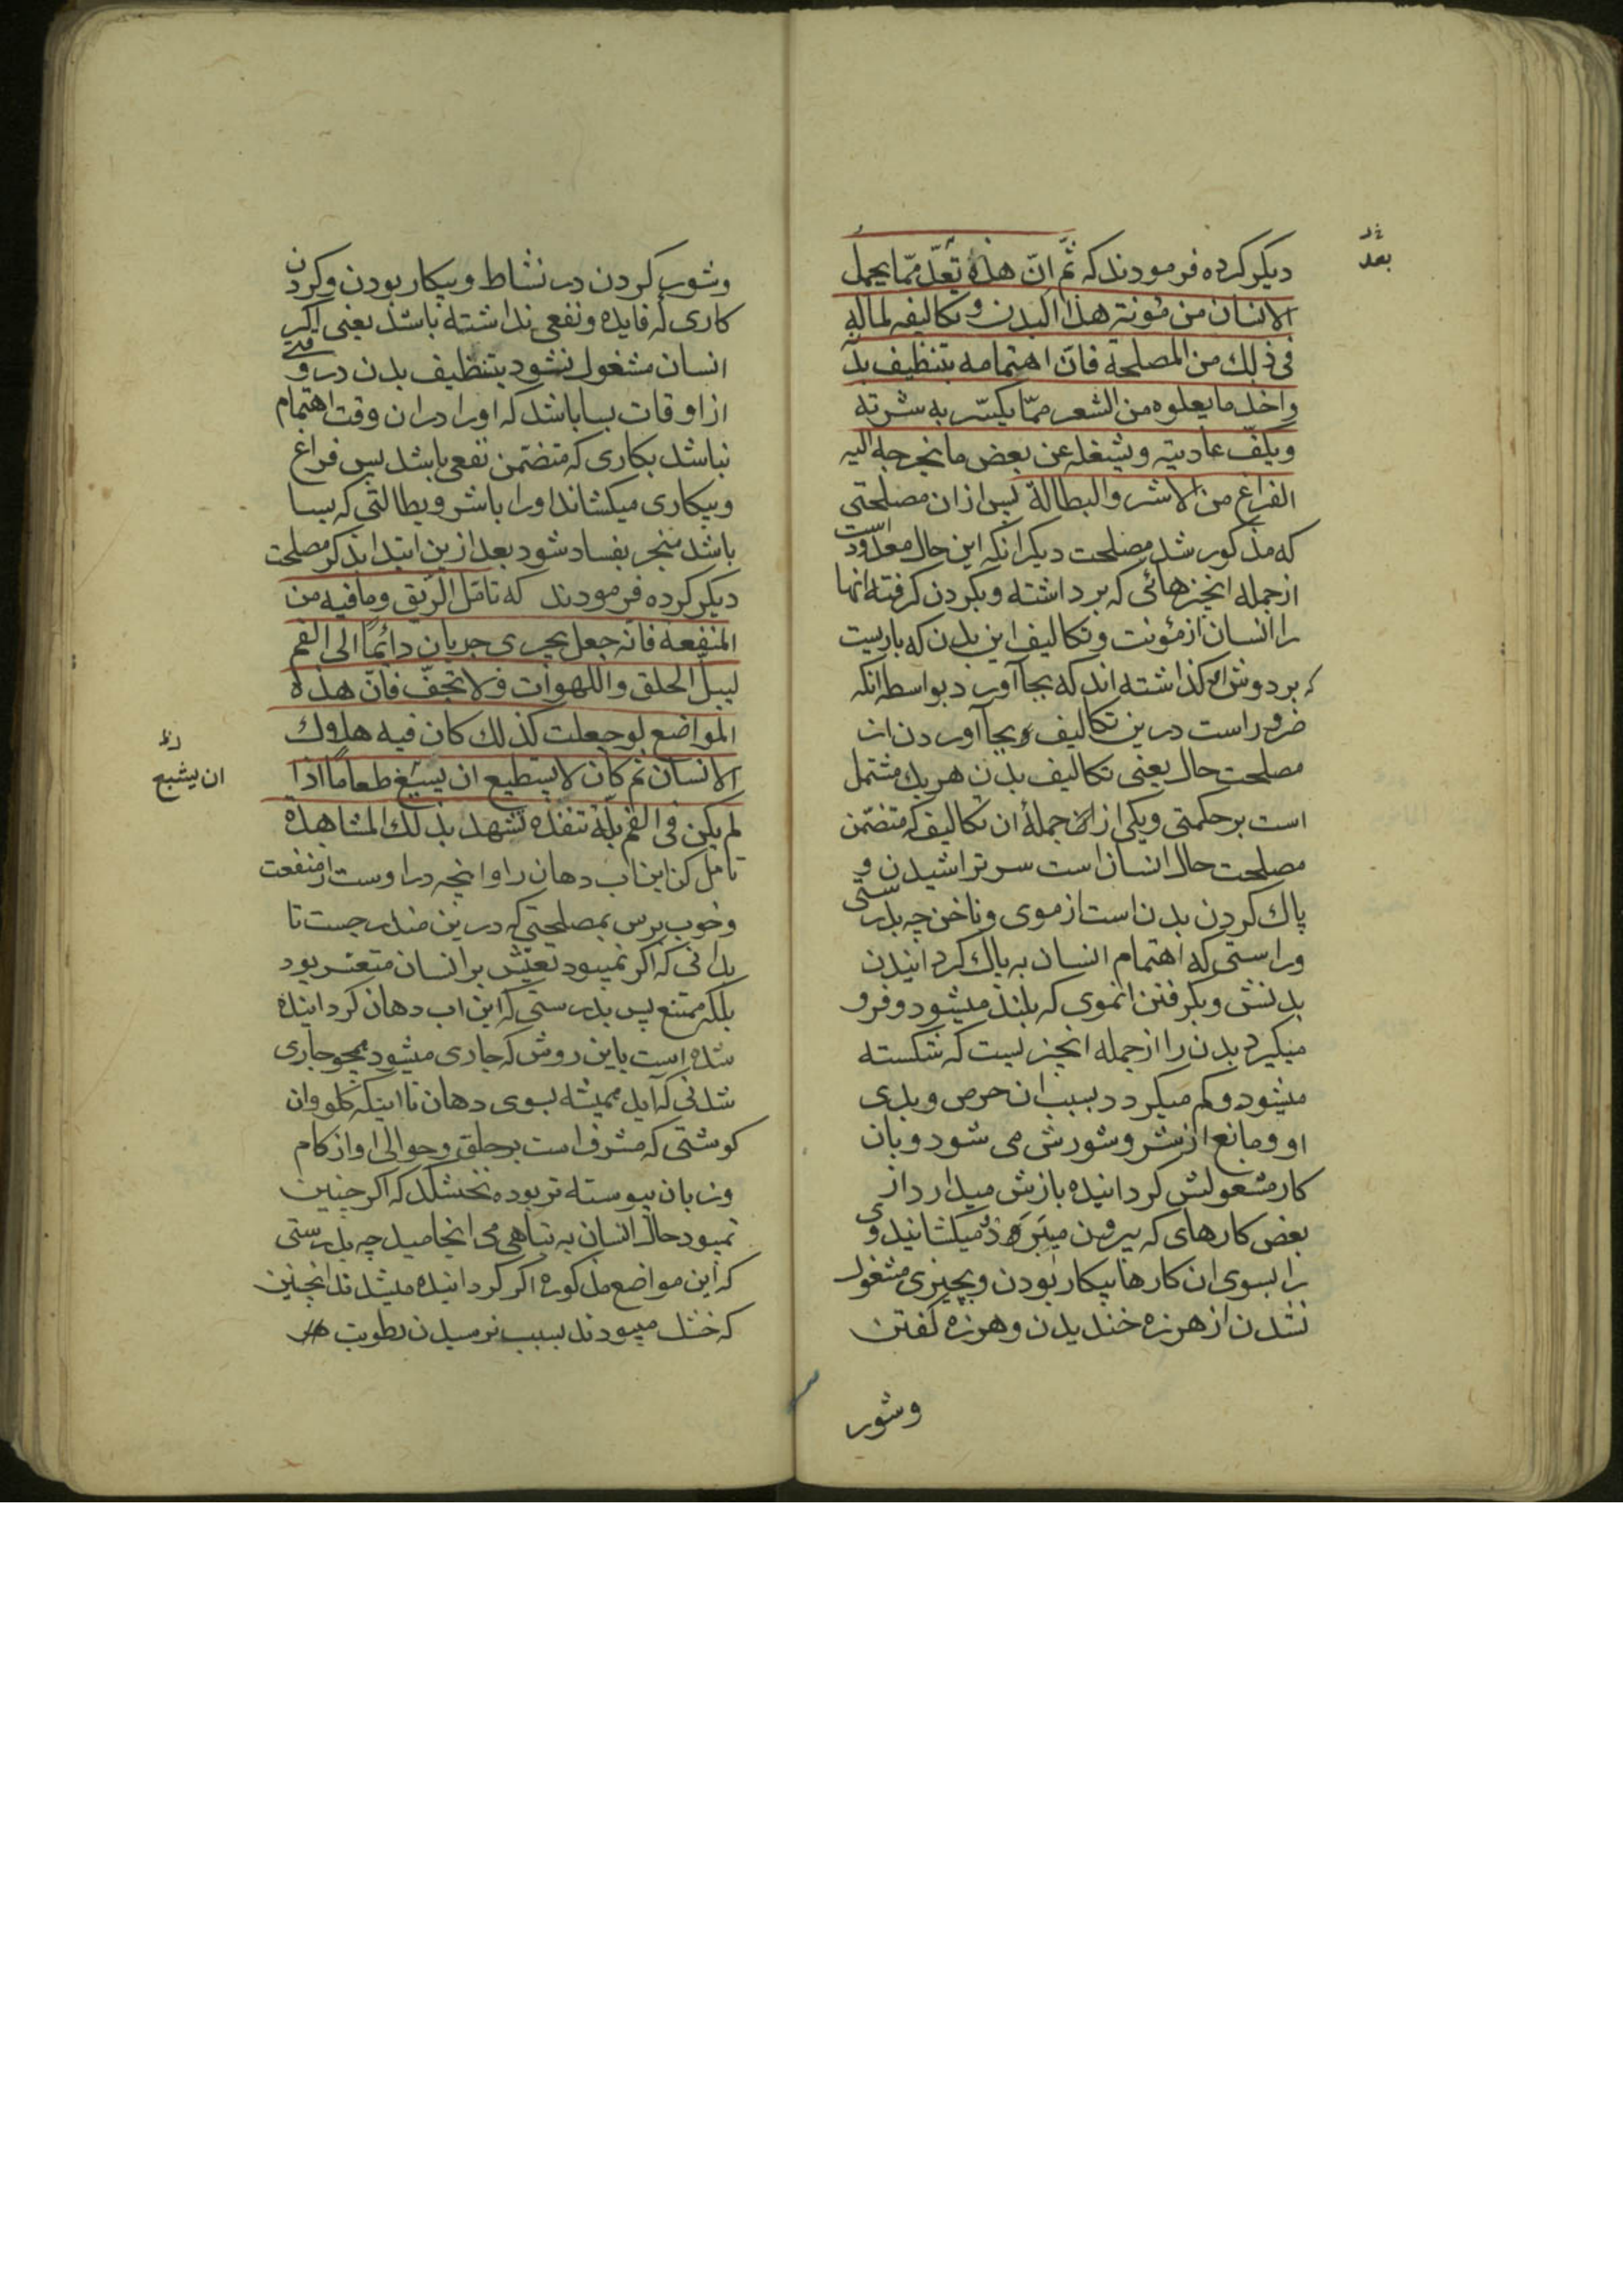 دیکر کرده فرمودند که ثمّ انّ هذه تعدّ ممّا یحمل
الانسان من مؤنة هذا البدن و تکالیفه لماله
فی ذلك من المصلحة فانّ اهتمامه بتنظیف بد
واخذ ما یعلوه من الشعر ممّا یکسّر به شرته
ویکفّ عادیته ویشغله عن بعض ما یخرجه الیه
الفراغ من الاشر والبطالة پس از ان مصلحتی
که مذکور شد مصلحت دیکر انکه این حال معدودست
از جمله انچیزهائی که برداشته وبکردن کرفته انها
را انسان از مؤونت و تکالیف این بدن که باریست
که بر دوش او کذاشته اند که بجا آورد بواسطه انکه
ضرور است درین تکالیف و بجا آوردن ان
مصلحت حال یعنی تکالیف بدن هر یك مشتمل
است بر حکمتی ویکی از جملهٔ ان تکالیف که متضمّن
مصلحت حال انسان است سر تراشیدن و
پاك کردن بدن است از موی و ناخن چه بدرستی
وراستی که اهتمام انسان به پاك کردانیدن
بدنش وبکرفتن انموی که بلند میشود و فرو
میکیرد بدن را از جمله انچیزیست که شکسته
میشود و کم میکردد بسبب ان حرص و بدی
او و مانع از شر و شورش می شود و بان
کار مشغولش کردانیده بازش میدارد از
بعض کارهای که بیرون میبرد و میکشاند وی
را بسوی ان کارها بیکار بودن و بچیزی مشغول
نشدن از هرزه خندیدن و هرزه کفتن
وشور
بعد
وشور کردن در نشاط و بیکار بودن و کردن
کاری که فایده و نفعی نداشته باشد یعنی اکر
انسان مشغول نشود بتنظیف بدن در وقتی
از اوقات بسا باشد که او را در ان وقت اهتمام
نباشد بکاری که متضمّن نفعی باشد پس فراغ
وبیکاری میکشاند او را باشر و بطالتی که بسا
باشد منجر بفساد شود بعد ازین ابتدا بذکر مصلحت
دیکر کرده فرمودند که تامّل الریق وما فیه من
المنفعة فانّه جعل یجری جریان دائمًا الی الفم
لیبلّ الحلق واللهوات فلا تجفّ فانّ هذه
المواضع لو جعلت کذلك کان فیه هلاك
الانسان ثم کان لا یستطیع ان یسیغ طعامًا اذا
لم یکن فی الفم بلّة تنفذه تشهد بذلك المشاهدة
تامل کن این اب دهان را و انچه در اوست از منفعت
وخوب برس بمصلحتی که درین مندرجست تا
بدانی که اکر نمیبود تعیّش بر انسان متعسّر بود
بلکه ممتنع پس بدرستی که این اب دهان کردانیده
شده است باین روش که جاری میشود همچو جاری
شدنی که آید همیشه بسوی دهان تا اینکه کلو و ان
کوشتی که مشرف است بر حلق و حوالی او از کام
وزبان پیوسته تر بوده نخشکد که اکر چنین
نمیبود حال انسان به تباهی می انجامید چه بدرستی
که این مواضع مذکوره اکر کردانیده میشدند انچنین
که خشك میبودند بسبب نرسیدن رطوبت
ان یشبع